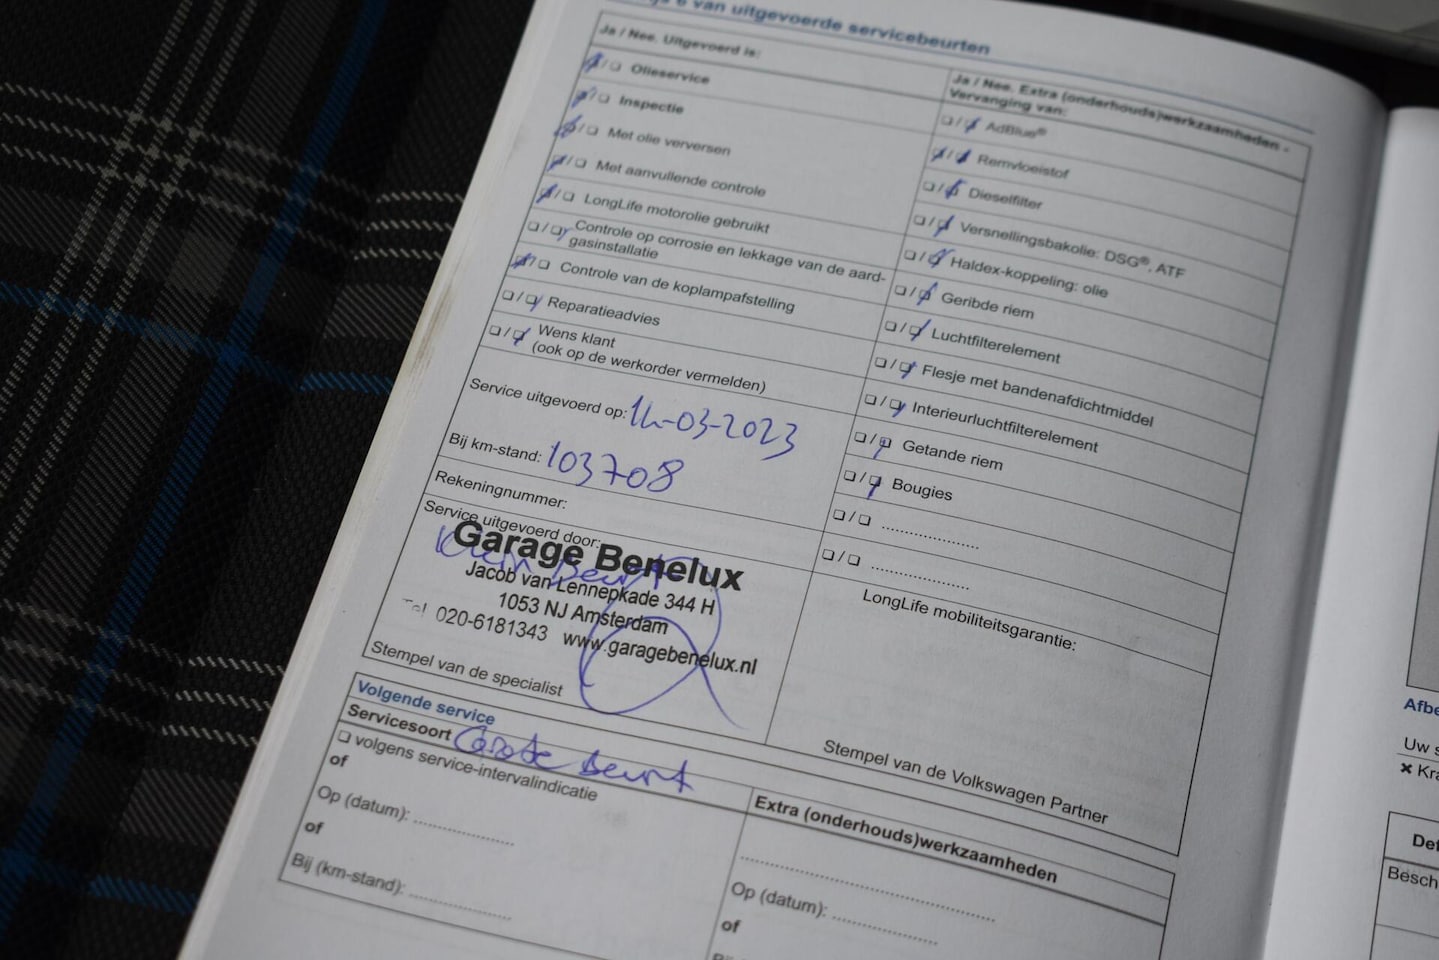 6 van uitgevoerde servicebeurten
Ja / Nee. Uitgevoerd is:
❏ / ❏ Olieservice
❏ / ❏ Inspectie
❏ / ❏ Met olie verversen
❏ / ❏ Met aanvullende controle
❏ / ❏ LongLife motorolie gebruikt
❏ / ❏ Controle op corrosie en lekkage van de aard-
gasinstallatie
❏ / ❏ Controle van de koplampafstelling
❏ / ❏ Reparatieadvies
❏ / ❏ Wens klant
(ook op de werkorder vermelden)
Service uitgevoerd op: 14-03-2023
Bij km-stand: 103708
Rekeningnummer:
Service uitgevoerd door:
Klein Beurt
Garage Benelux
Jacob van Lennepkade 344 H
1053 NJ Amsterdam
Tel 020-6181343 www.garagebenelux.nl
Stempel van de specialist
Ja / Nee. Extra (onderhouds)werkzaamheden -
Vervanging van:
❏ / ❏ AdBlue®
❏ / ❏ Remvloeistof
❏ / ❏ Dieselfilter
❏ / ❏ Versnellingsbakolie: DSG®, ATF
❏ / ❏ Haldex-koppeling: olie
❏ / ❏ Geribde riem
❏ / ❏ Luchtfilterelement
❏ / ❏ Flesje met bandenafdichtmiddel
❏ / ❏ Interieurluchtfilterelement
❏ / ❏ Getande riem
❏ / ❏ Bougies
❏ / ❏ ......................
❏ / ❏ ......................
LongLife mobiliteitsgarantie:
Stempel van de Volkswagen Partner
Volgende service
Servicesoort Grote Beurt
❏ volgens service-intervalindicatie
of
Op (datum): ......................
of
Bij (km-stand): ......................
Extra (onderhouds)werkzaamheden
......................
Op (datum): ......................
of
Afbe
Uw s
✖ Kra
Def
Besch